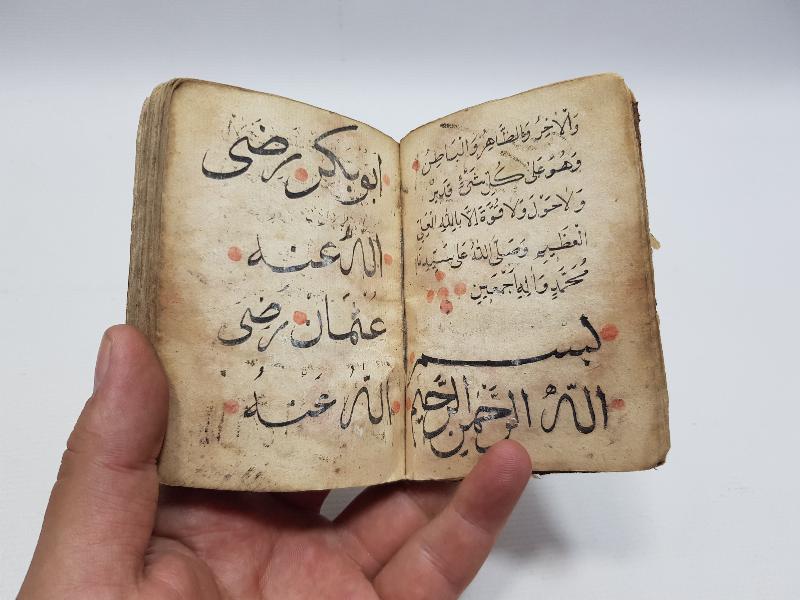 وَالْاٰخِرُ وَالظَّاهِرُ وَالْبَاطِنُ
وَهُوَ عَلٰى كُلِّ شَيْءٍ قَدِيرٌ
وَلَا حَوْلَ وَلَا قُوَّةَ اِلَّا بِاللّٰهِ الْعَلِيِّ
الْعَظِيمِ وَصَلَّى اللّٰهُ عَلٰى سَيِّدِنَا
مُحَمَّدٍ وَاٰلِهِ اَجْمَعِينَ
بسم
اللّٰهُ الرَّحْمٰنِ الرَّحيم
ابو بكر رضَى
اللّٰهُ عنه
عُثمَان رضَى
اللّٰه عَنهُ